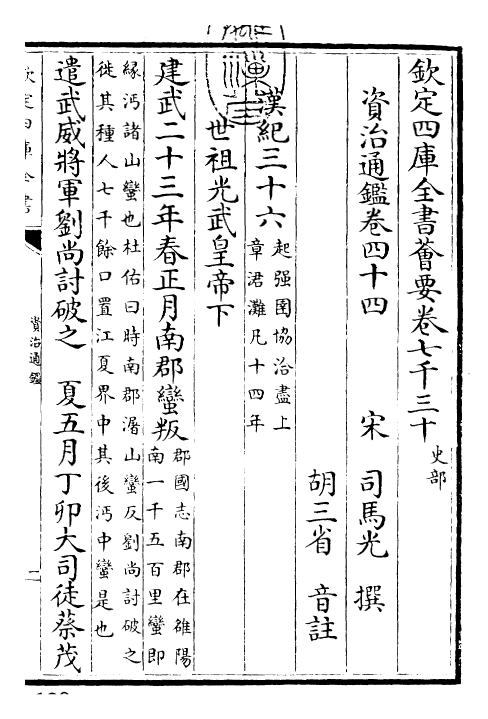 欽定四庫全書薈要卷七千三十 史部
資治通鑑卷四十四
宋 司馬光 撰
胡三省 音註
漢紀三十六 起强圉協洽盡上
章君灘凡十四年
世祖光武皇帝下
建武二十三年春正月南郡蠻叛 郡國志南郡在雒陽
南一千五百里蠻即
緣沔諸山蠻也杜佑曰時南郡潳山蠻反劉尚討破之
徙其種人七千餘口置江夏界中其後沔中蠻是也
遣武威將軍劉尚討破之 夏五月丁卯大司徒蔡茂
欽定四庫全書
資治通鑑